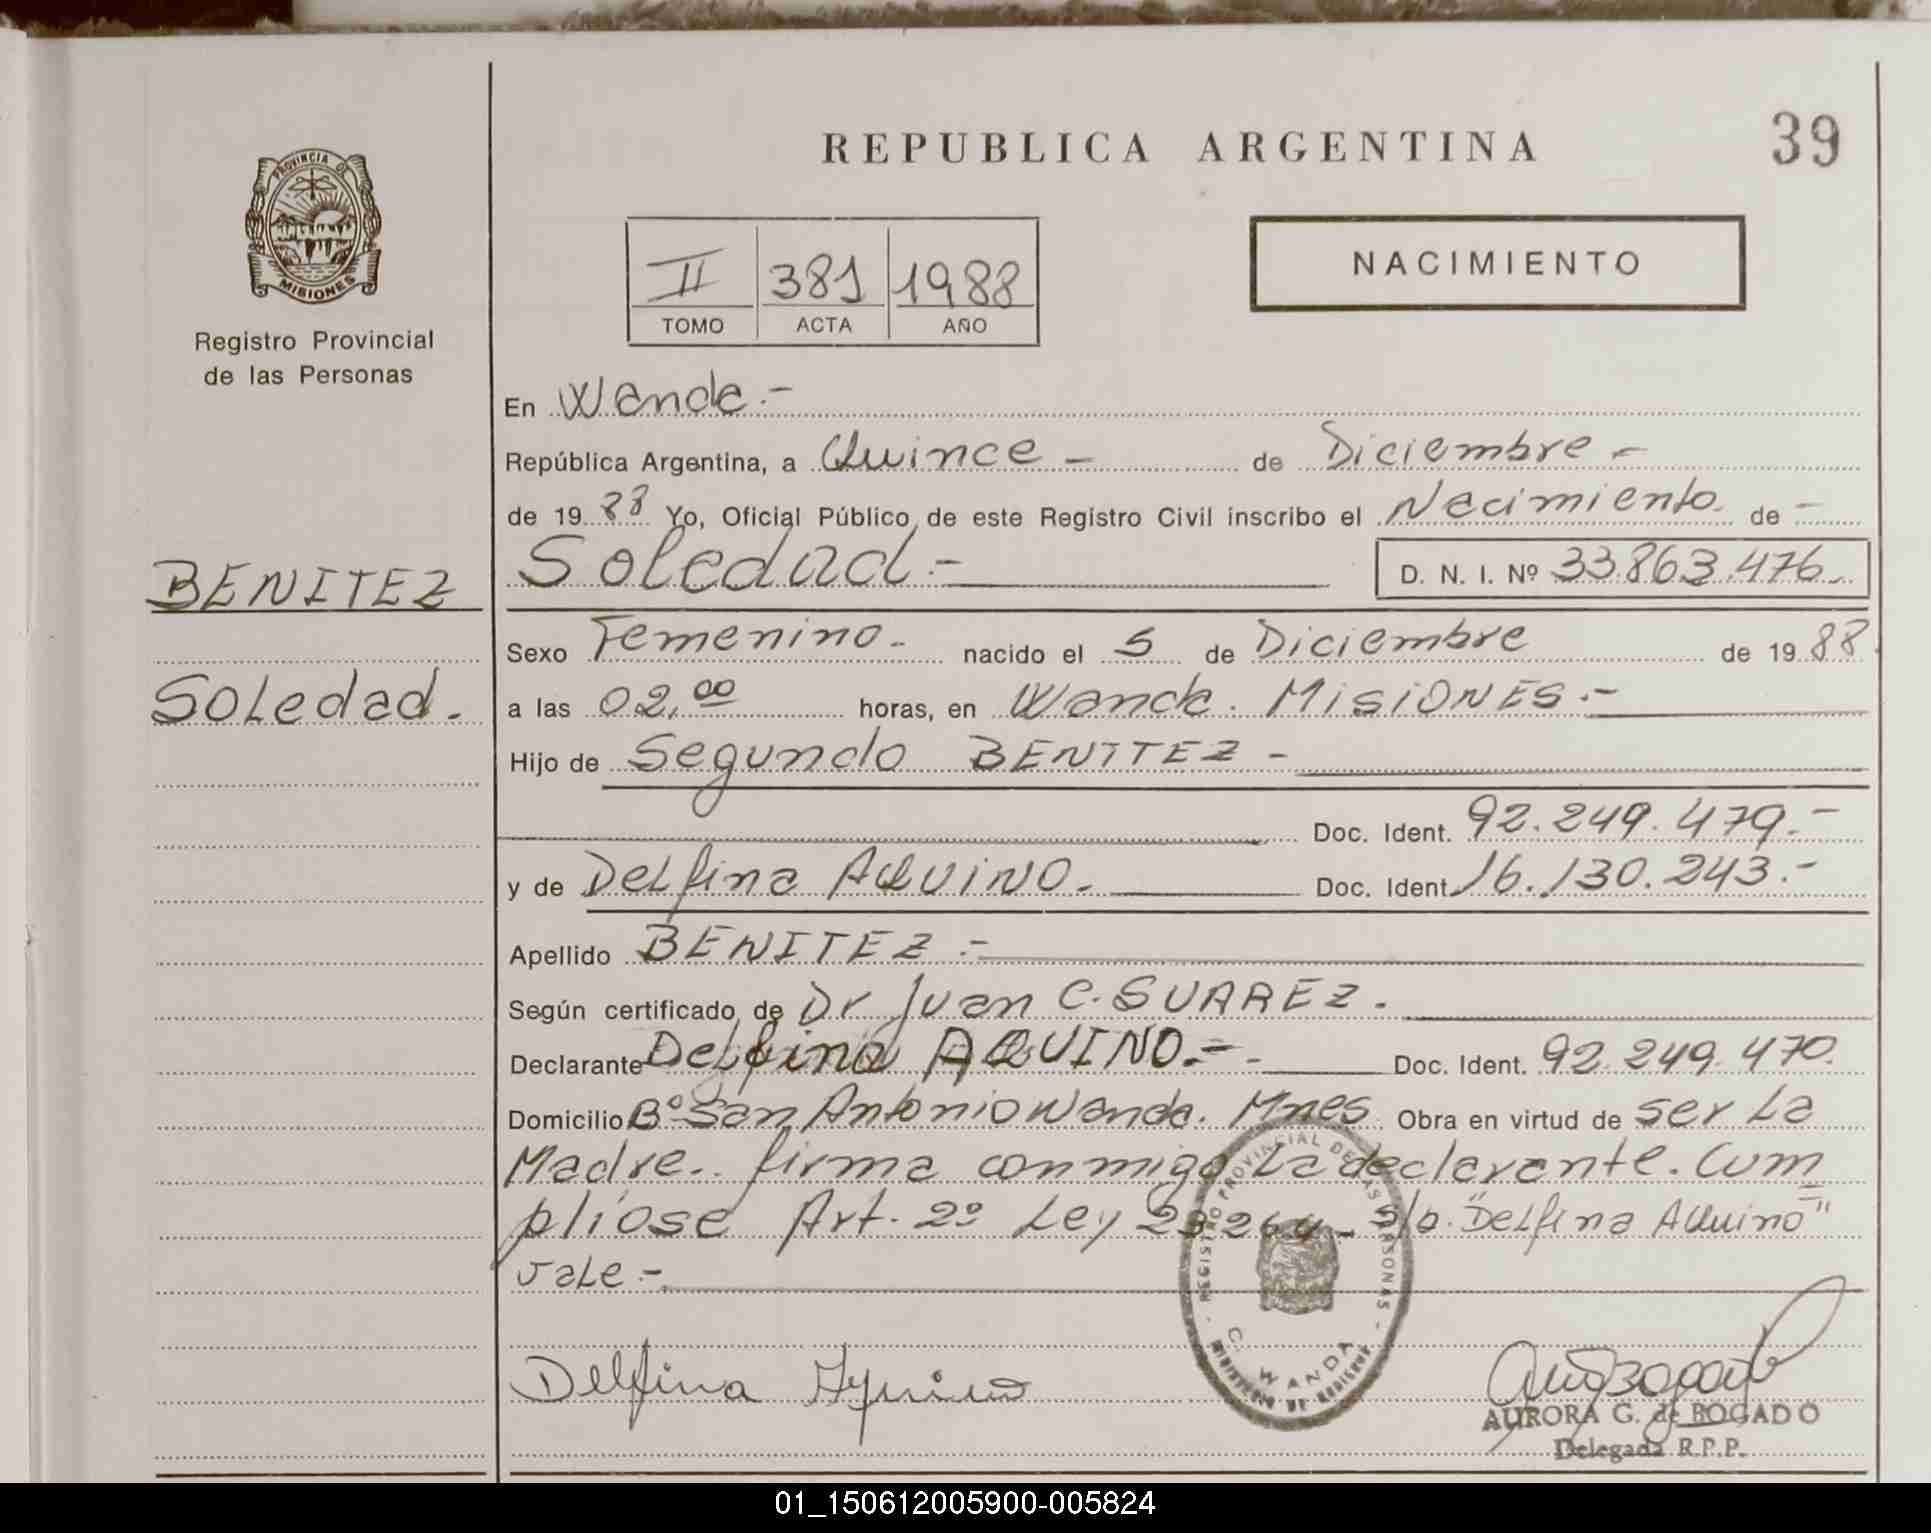 REPUBLICA ARGENTINA
39
PROVINCIA DE
MISIONES
Registro Provincial
de las Personas
II 381 1988
TOMO ACTA AÑO
NACIMIENTO
En Wanda.-
República Argentina, a Quince - de Diciembre -
de 19 88 Yo, Oficial Público de este Registro Civil inscribo el Nacimiento de -
Soledad.- D. N. I. Nº 33.863.476
BENITEZ
Soledad.
Sexo Femenino.- nacido el 5 de Diciembre de 19 88
a las 02,00 horas, en Wanda. MISIONES.-
Hijo de Segundo BENITEZ -
Doc. Ident. 92.249.479.-
y de Delfina AQUINO. Doc. Ident. 16.130.243.-
Apellido BENITEZ.-
Según certificado de Dr Juan C. SUAREZ.
Declarante Delfina AQUINO.- Doc. Ident. 92.249.470.
Domicilio Bº San Antonio Wanda. Mnes Obra en virtud de ser la
Madre.. firma conmigo La declarante. Cum
pliose Art. 2º Ley 23264 - s/b. "Delfina Aquino"
vale.-
REGISTRO PROVINCIAL DE LAS PERSONAS
WANDA
Delfina Aquino
AURORA G. de BOGADO
Delegada R.P.P.
01_150612005900-005824